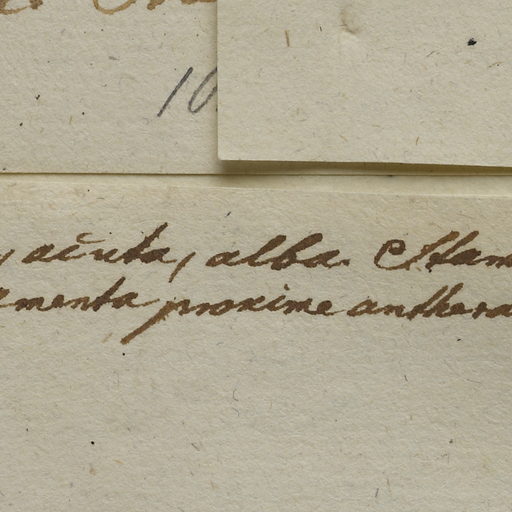 10
, acuta, alba. Stam
menta proxime anthera